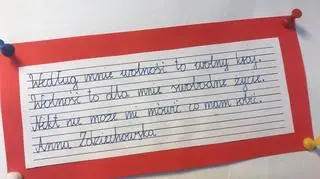 Według mnie wolność to wolny kraj.
Wolność to dla mnie swobodne życie.
Nikt nie może mi mówić co mam robić.
Anna Zdziechowska